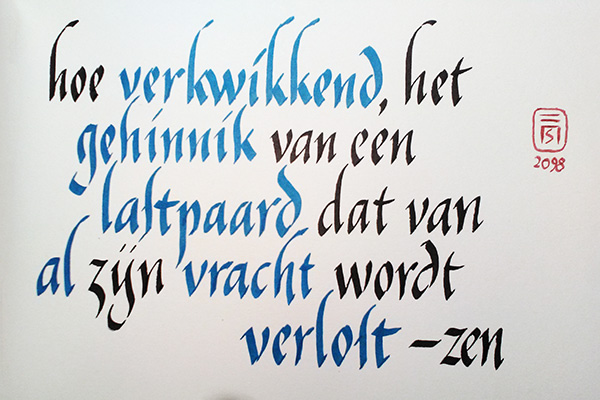 hoe verkwikkend, het
gehinnik van een
laſtpaard dat van
al zijn vracht wordt
verloſt – zen
2098